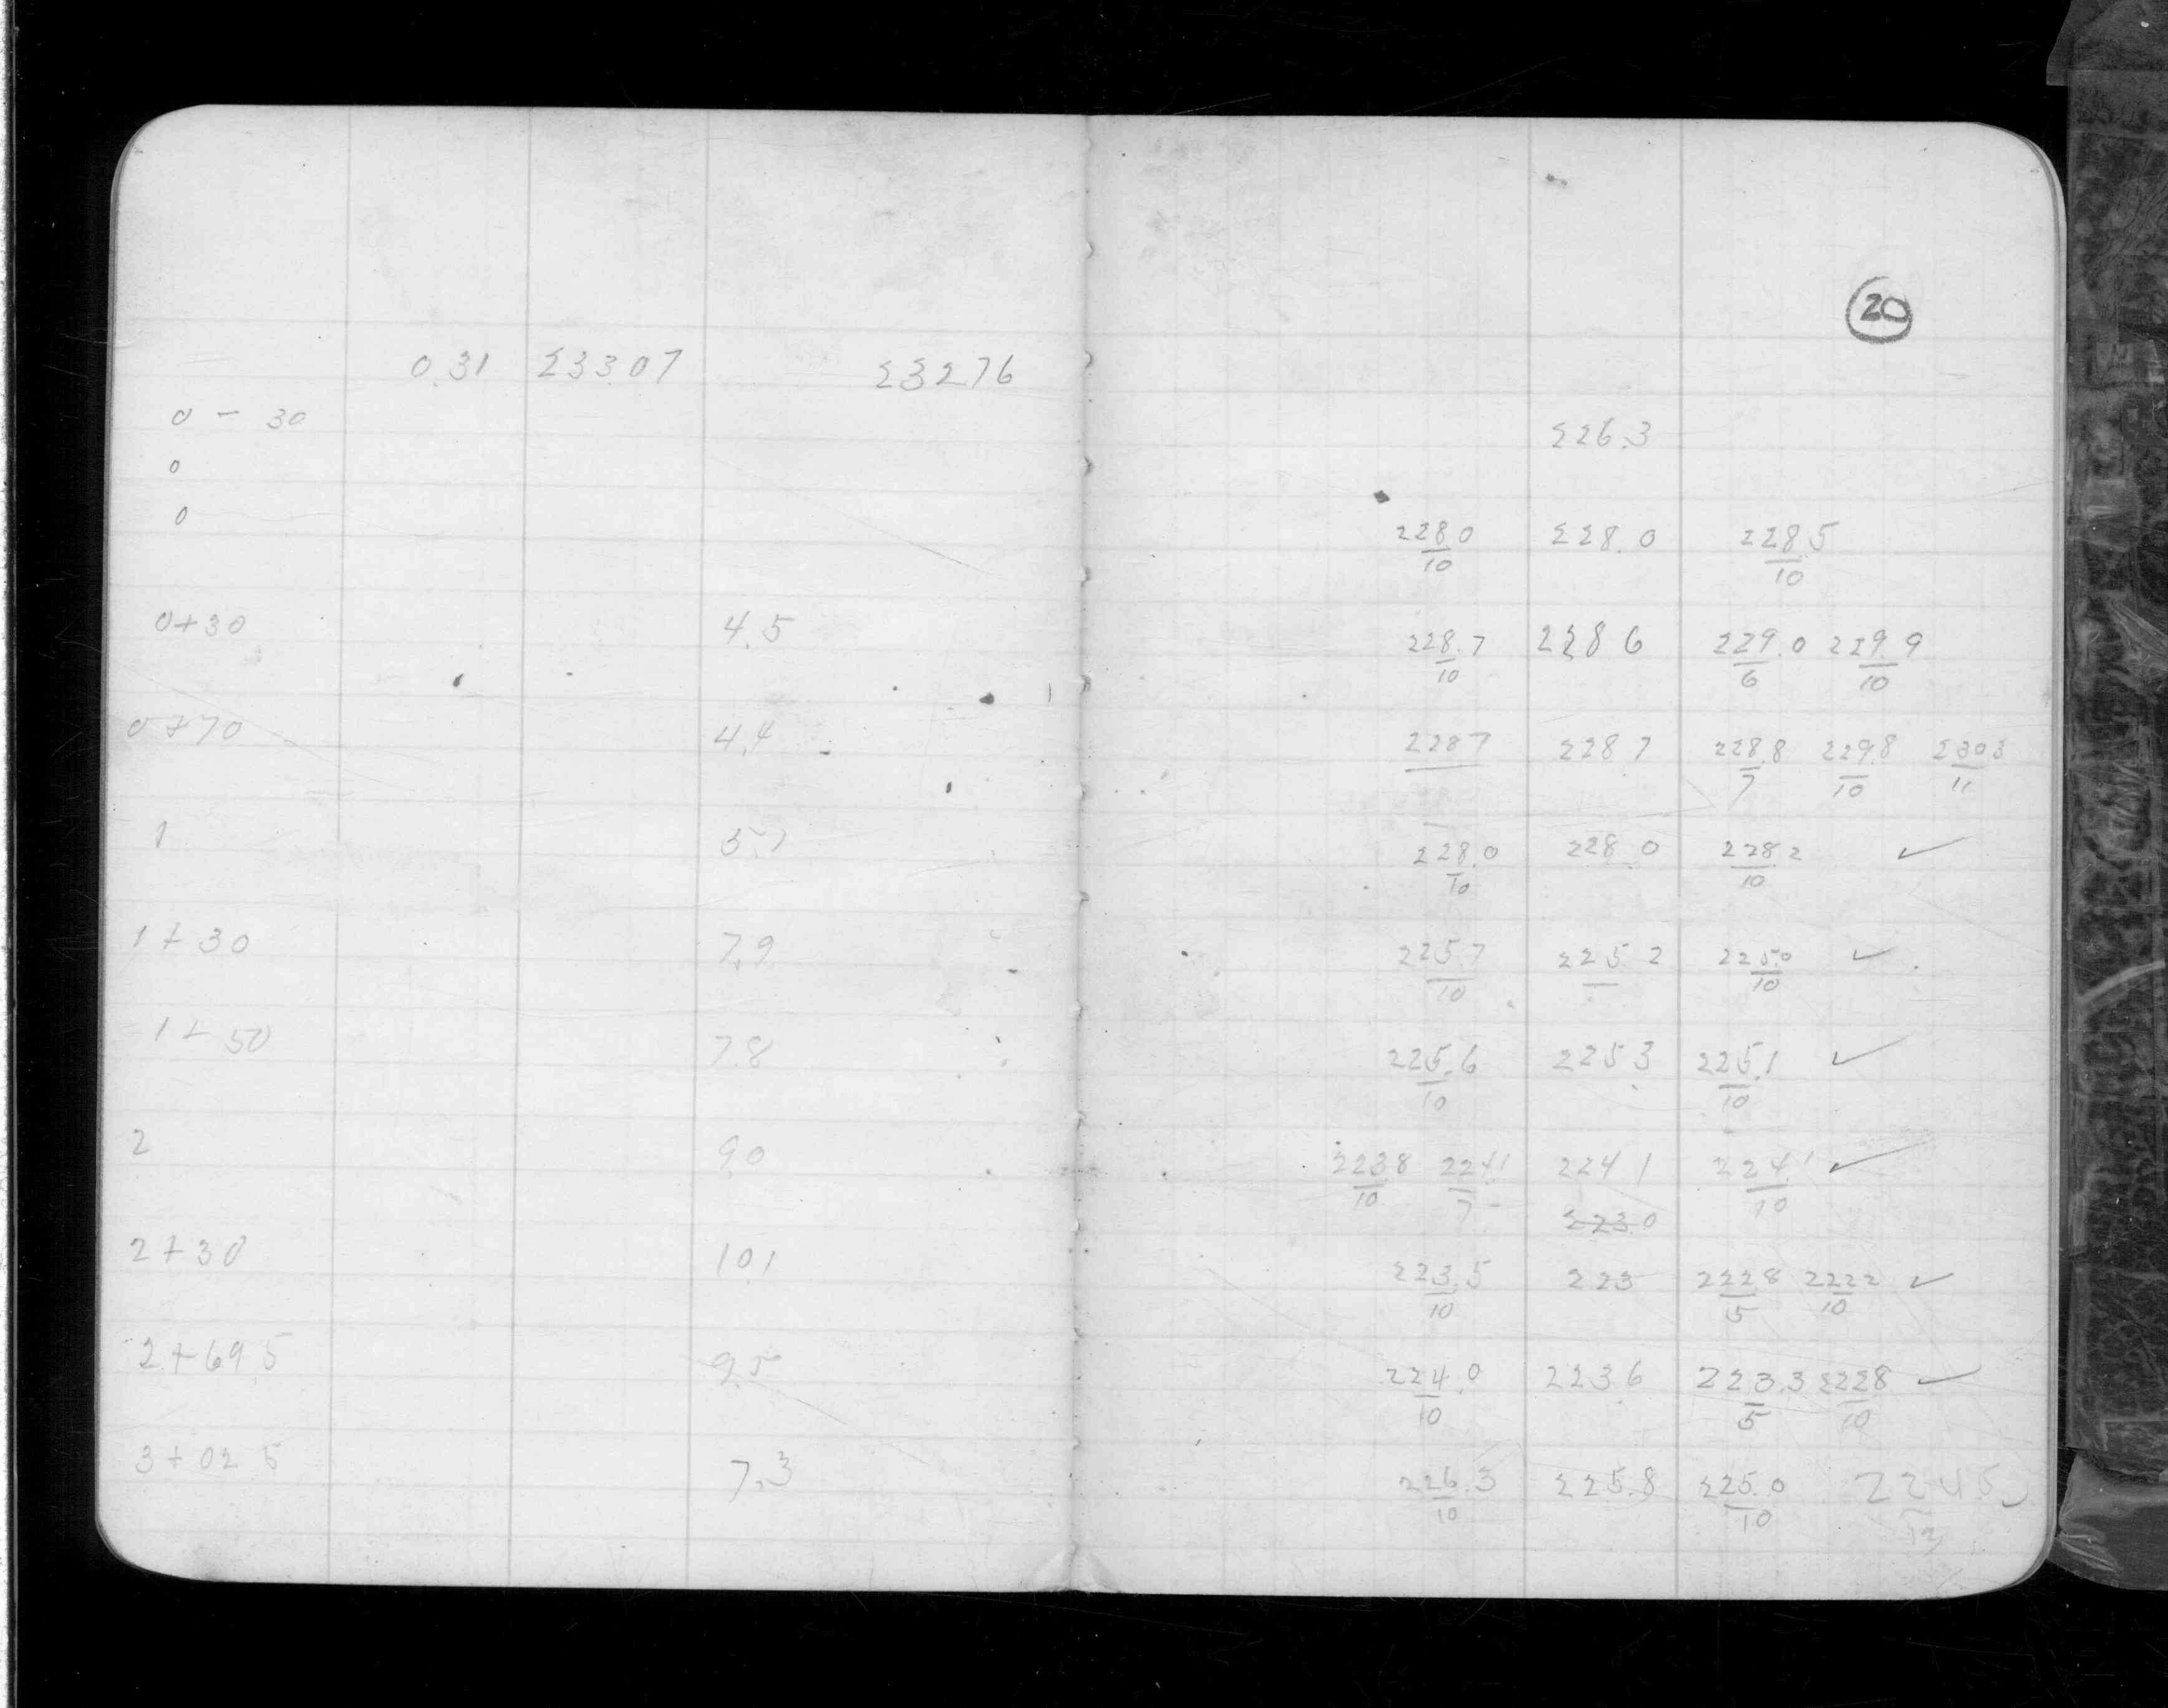 20
0.31 233.07 232.76
0 - 30 226.3
0
0 228.0/10 228.0 228.5/10
0+30 4.5 228.7/10 228 6 229.0/6 229.9/10
0+70 4.4 228 7 228 7 228.8/7 229.8/10 230 3/11
1 5.1 228.0/10 228.0 228.2/10 ✓
1+30 7.9 225.7/10 225 2 225.0/10 ✓
1+50 7.8 225.6/10 225 3 225.1/10 ✓
2 9.0 223.8/10 224.1/7 224 1 224.1/10 ✓
223.0
2+30 10.1 223.5/10 223 222 8/5 222 2/10 ✓
2+69.5 9.5 224.0/10 223 6 223.3/5 222 8/10 ✓
3+02 5 7.3 226.3/10 225.8 225.0/10 224.5/12 ✓